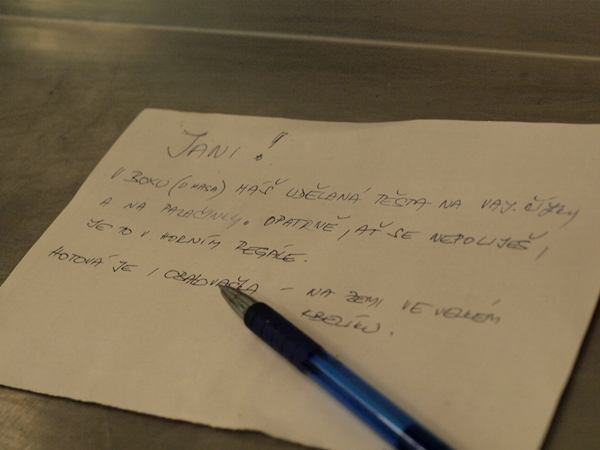 JANI !
V BOXU (U MASA) MÁŠ UDĚLANÁ TĚSTA NA VAJ.
A NA PALAČINKY. OPATRNĚ, AŤ SE NEPOLIJEŠ,
JE TO V HORNÍM REGÁLE.
HOTOVÁ JE I OBALOVAČKA – NA ZEMI VE VELKÉM
KBELÍKU.